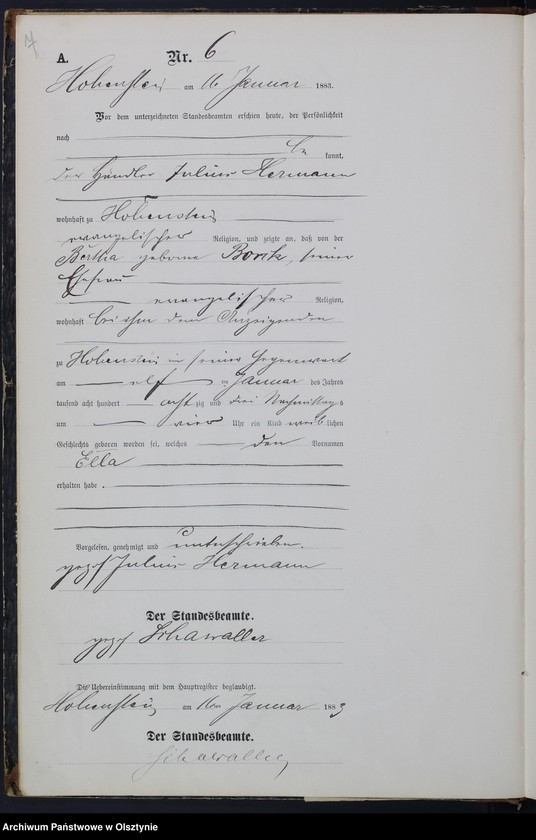 A. Nr. 6
Hohenstein am 16 Januar 1883.
Vor dem unterzeichneten Standesbeamten erschien heute, der Persönlichkeit
nach
be kannt,
der Händler Julius Hermann
wohnhaft zu Hohenstein
evangelischer Religion, und zeigte an, daß von der
Bertha geborne Borik, seiner
Ehefrau
evangelischer Religion,
wohnhaft bei ihm dem Anzeigenden
zu Hohenstein in seiner Gegenwart
am elf ten Januar des Jahres
tausend acht hundert achtzig und drei Nachmittags
um vier Uhr ein Kind weiblichen
Geschlechts geboren worden sei, welches den Vornamen
Ella
erhalten habe.
Vorgelesen, genehmigt und unterschrieben.
gez Julius Hermann
Der Standesbeamte.
gez
Die Uebereinstimmung mit dem Hauptregister beglaubigt.
Hohenstein am 16 Januar 1883
Der Standesbeamte.
Archiwum Państwowe w Olsztynie